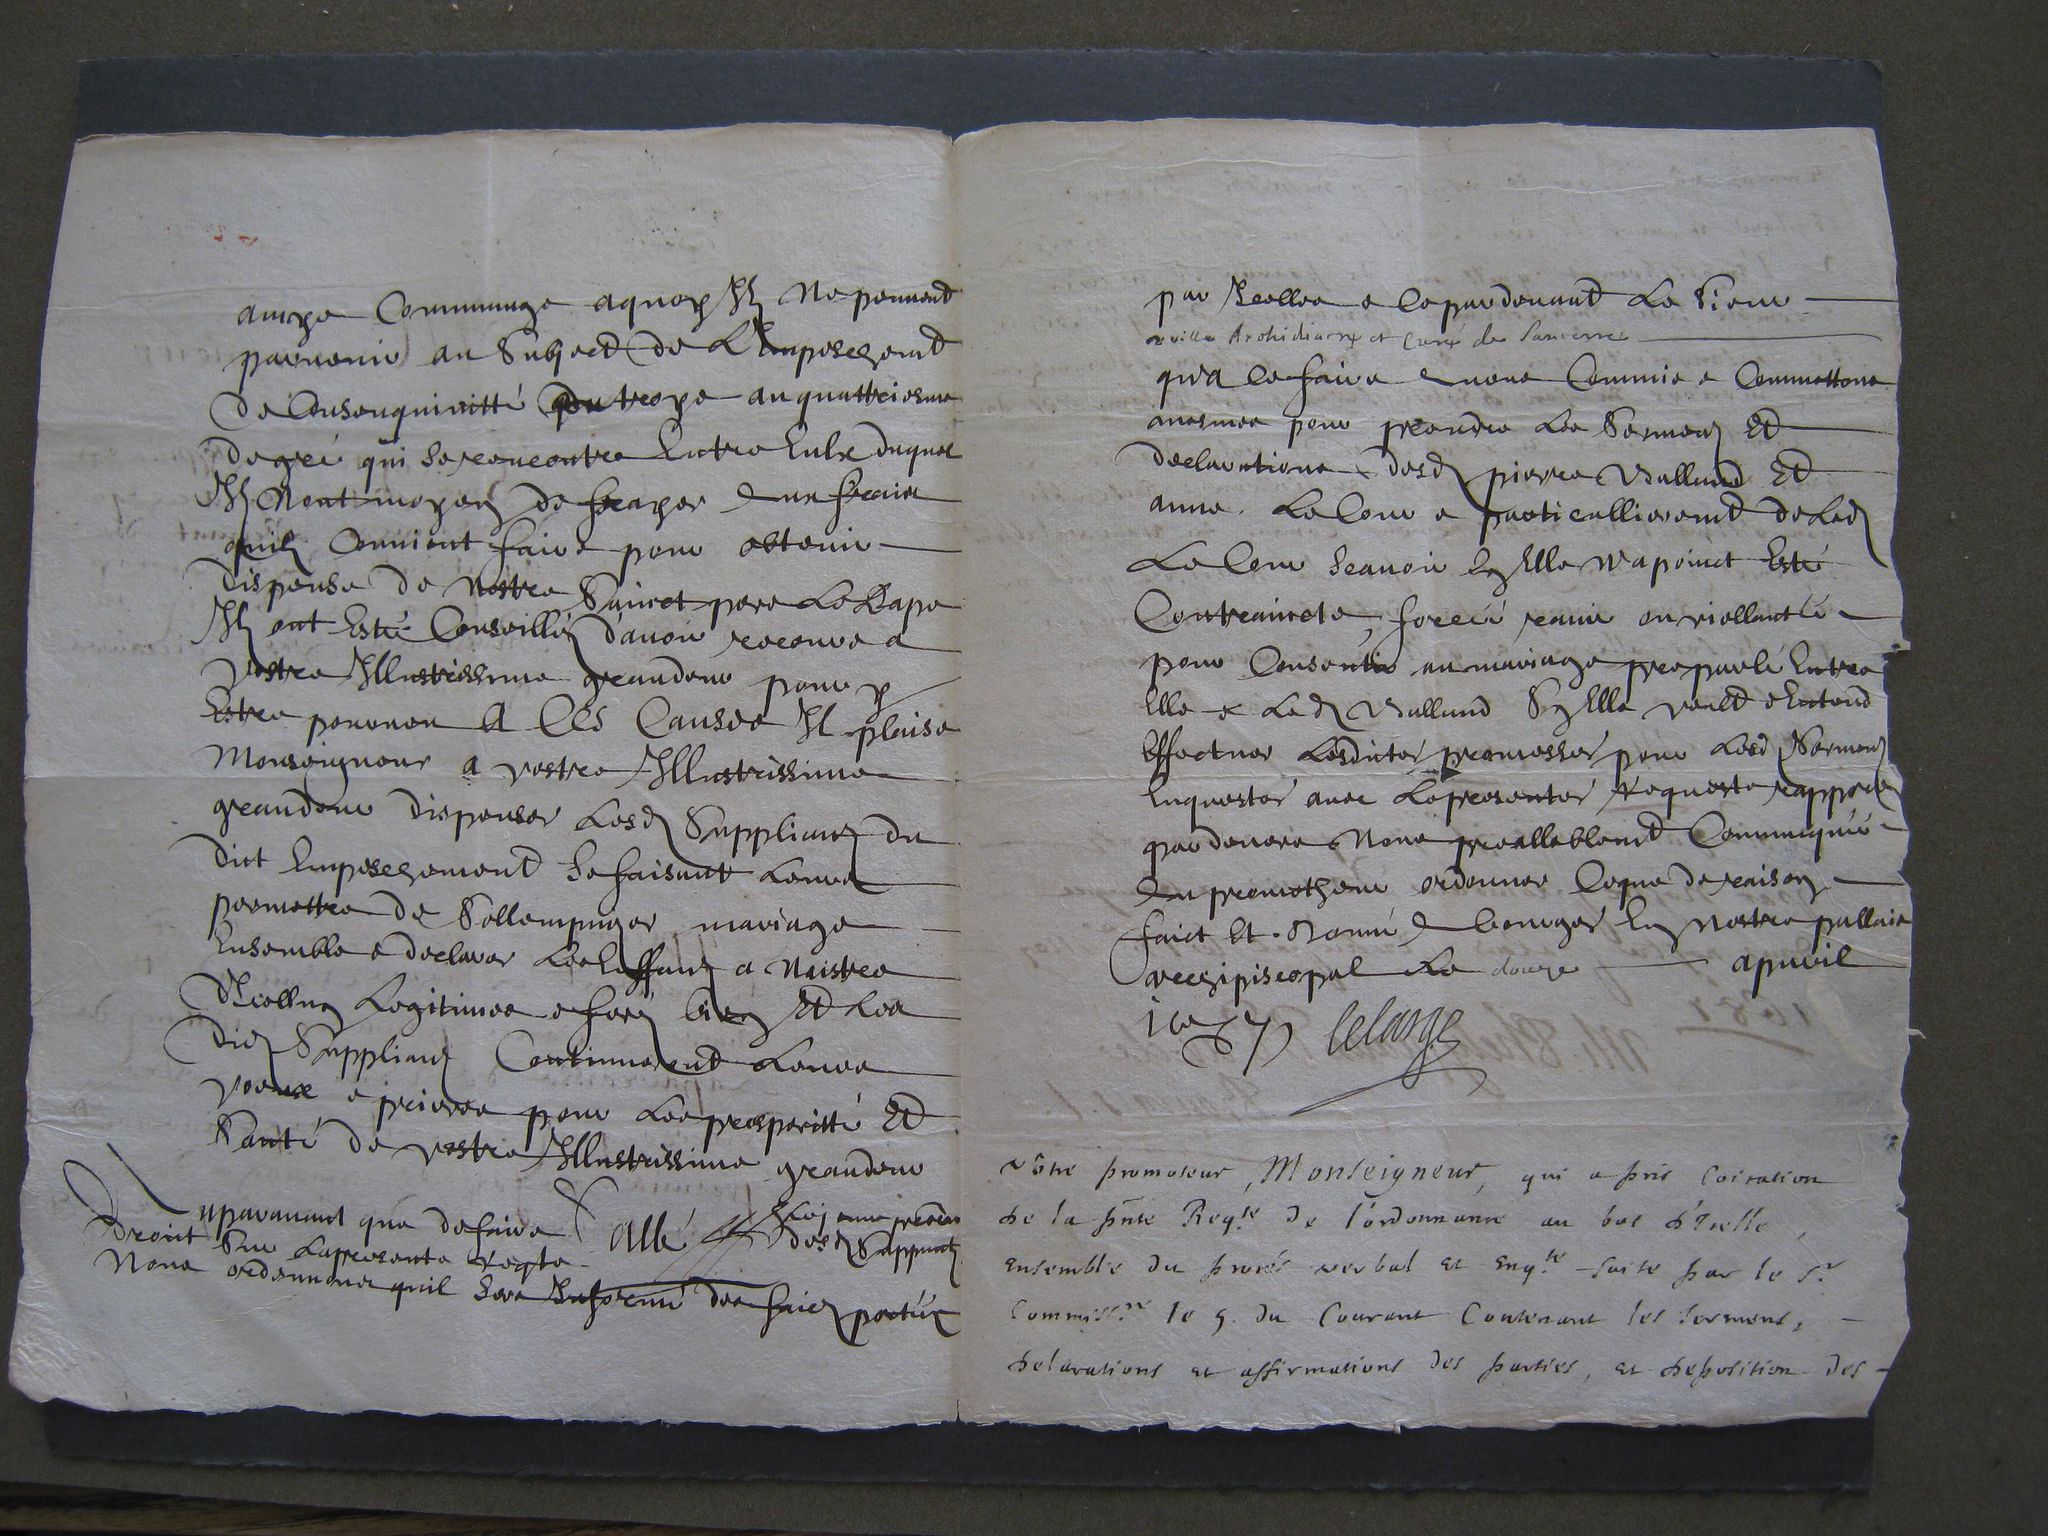 amye Communuge aquoy Ilz Ne peuvent
parvenir au Subject de L'Empeschement
de Consenguinitté du trope au quattriesme
degré qui se rencontre Entre Eulx duquel
Ilz Nont moyen de frayer aux fraix
quilz Convient faire pour obtenir
dispense de Nostre Sainct pere Le Pape
Ilz ont Esté Conseillez d'avoir recours a
vostre Illustrissime grandeur pour y
Estre pourveu A CES Causes Il plaise
Monseigneur a vostre Illustrissime
grandeur dispenser Lesdz Supplians du
dict Empeschement Se faisant Leur
permettre de Sollempnizer mariage
Ensemble & declarer Les Enffans a Naistre
d'Icelluy Legitimes & ferez bien Et Les
dictz Supplians Continueront Leurs
voeux & prieres pour Les prosperitté Et
Santé de vostre Illustrissime grandeur
allé
desdz Supplians
Auparavant que de faire
droict Sur Lapresente reqte
Nous ordonnons quil Sera Informé des faictz portés
par Icelles & Ce pardevant Le Sieur
Archidiacre et Curé de Sancerre
qu'a Ce faire avons Commis & Commettons
mesmes pour prendre Les Sermens Et
declarations desdz pierre Rulland Et
anne Le Cour & particullierement de Ladz
Le Cour Scavoir Sy Elle N'a poinct Esté
Contraincte, forcée ravie ou viollantée
pour Consentir au mariage preparlé Entre
Elle & Ledz Rulland Sy Elle veult & Entend
Effectuer Lesdictes promesses pour Lesdz Sermens
Enquestes avec Lapresentes Requeste rapportez
pardevers Nous preallablement Communiqué
au promotheur ordonner Ce que de raison
faict Et donné A bourges En Nostre pallais
archipiscopal Le douze apvril
lelarge
Nôtre promoteur, Monseigneur, qui a pris Coīcation
de la pñte Reqte de l'ordonnance au bas d'Icelle,
ensemble du procés verbal et enqte faite par le Sr
Commissre le 9. du Courant Contenant les serments,
declarations et affirmations des parties, et deposition des